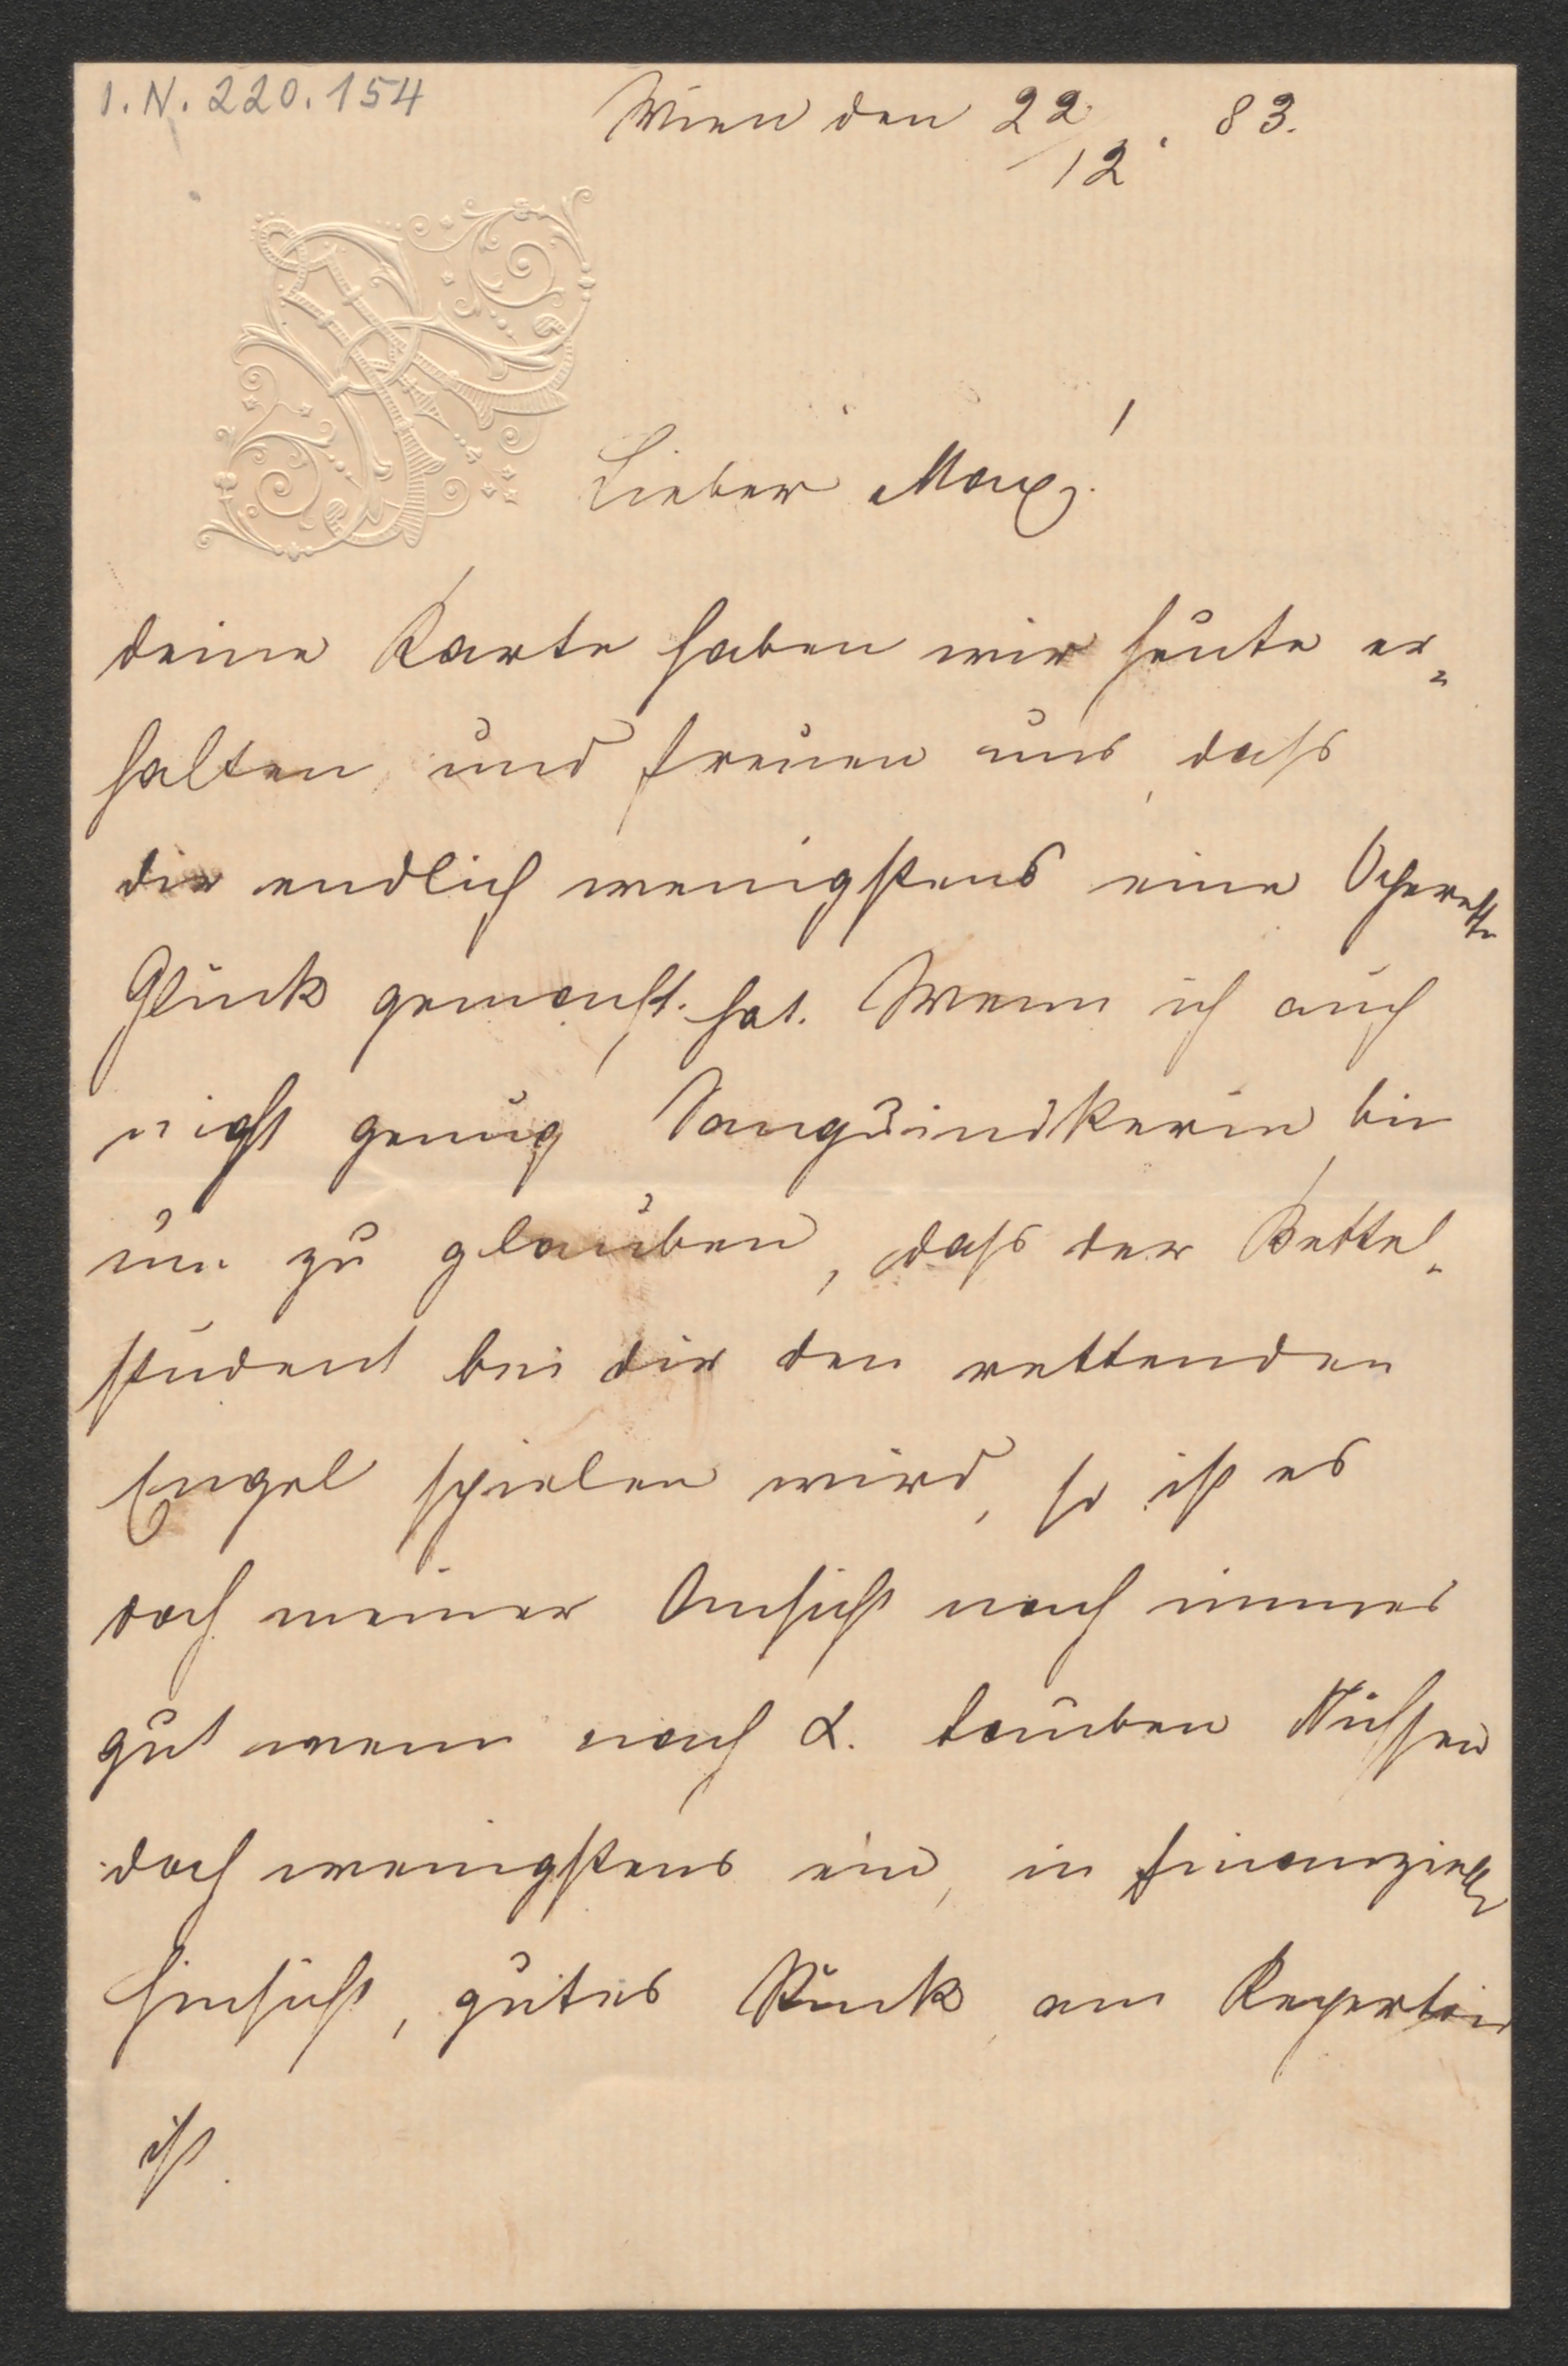 I.N. 220.154
Wien den 22/12. 83.
Lieber Max!
deine Karte haben wir heute er-
halten und freuen uns, dass
dir endlich wenigstens eine Operette
Glück gemacht hat. Wenn ich auch
nicht genug Sanguinikerin bin
um zu glauben, dass der Bettel-
student bei dir den rettenden
Engel spielen wird, so ist es
doch meiner Ansicht nach immer
gut wenn nach 2. tauben Nüssen
doch wenigstens ein, in finanzieller
Hinsicht, gutes Stück am Repertoir
ist.